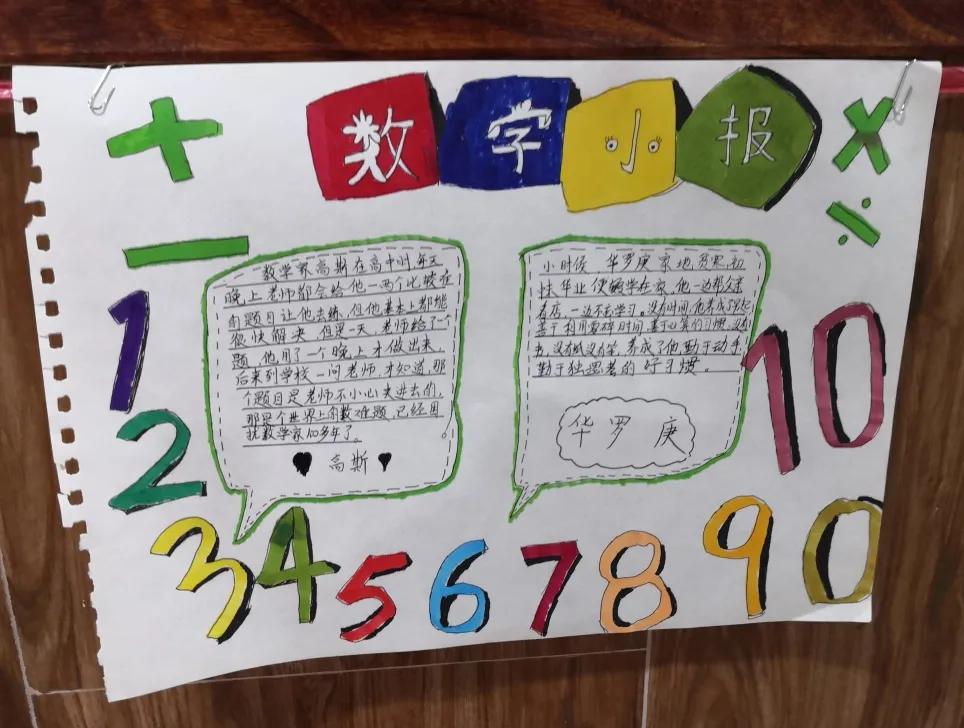 + 数字小报 ×
÷
−
一数学家高斯在高中时,每天
晚上老师都会给他一两个比较难
的题目让他去练,但他基本上都能
很快解决,但是一天,老师给了一个
题,他用了一个晚上才做出来,
后来到学校一问老师,才知道,那
个题目是老师不小心夹进去的,
那是个世界上的数难题,已经困
扰数学家100多年了。
高斯
小时候,华罗庚家地贫寒,初
中毕业便辍学在家,他一边帮父亲
看店,一边不忘学习。没有时间,他养成了早起,
善于利用零碎时间,善于心算的习惯,没有
书,没有纸没有笔,养成了他勤于动手,
勤于独思考的好习惯。
华罗庚
1
2
3 4 5 6 7 8 9 0
10